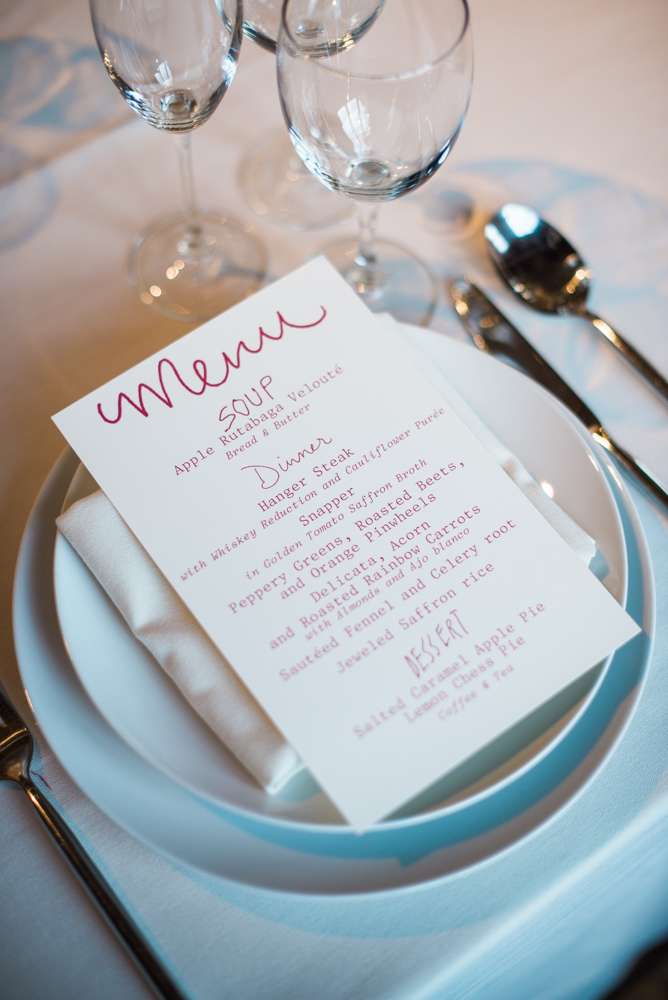 Menu
SOUP
Apple Rutabaga Velouté
Bread & Butter
Dinner
Hanger Steak
with Whiskey Reduction and Cauliflower Purée
Snapper
in Golden Tomato Saffron Broth
Peppery Greens, Roasted Beets,
and Orange Pinwheels
Delicata, Acorn
and Roasted Rainbow Carrots
with Almonds and Ajo blanco
Sautéed Fennel and Celery root
Jeweled Saffron rice
DESSERT
Salted Caramel Apple Pie
Lemon Chess Pie
Coffee & Tea